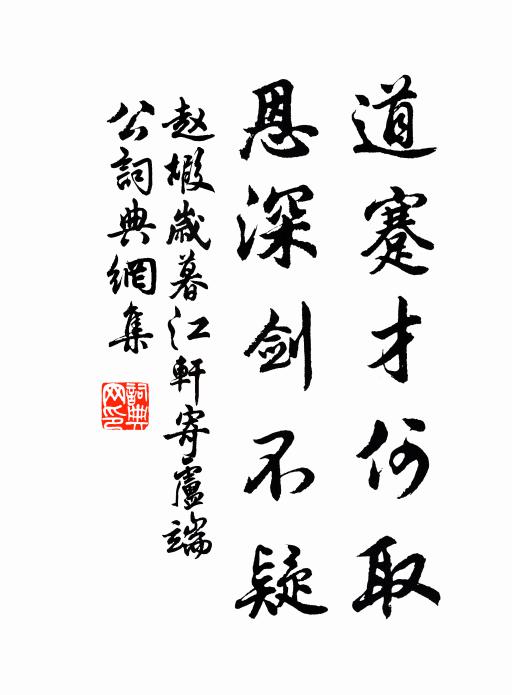 道蹇才何取
恩深剑不疑
赵嘏歲暮江軒寄盧端
公詞典網集
詞典网印